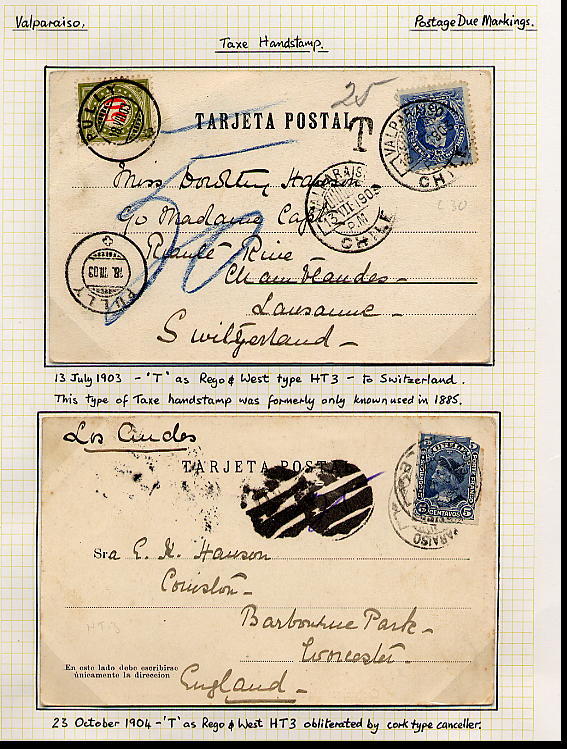 Valparaiso. Postage Due Markings.
Taxe Handstamp.
25
TARJETA POSTAL T
PULLY
VALPARAISO
CHILE
Miss Dorothy Hanson
VALPARAISO
13 VII 1903
P.M
CHILE
c/o Madame
Rive
£30
18. VIII. 03
PULLY
50
Lausanne
Switzerland
13 July 1903 - 'T' as Rego & West type HT3 - to Switzerland.
This type of Taxe handstamp was formerly only known used in 1885.
Los Andes
TARJETA POSTAL
5
CENTAVOS
PARAISO
Sra E. K. Hanson
Barbourne Park
HT3
Worcester
En este lado debe escribirse
únicamente la direccion
England
23 October 1904 - 'T' as Rego & West HT3 obliterated by cork type canceller.